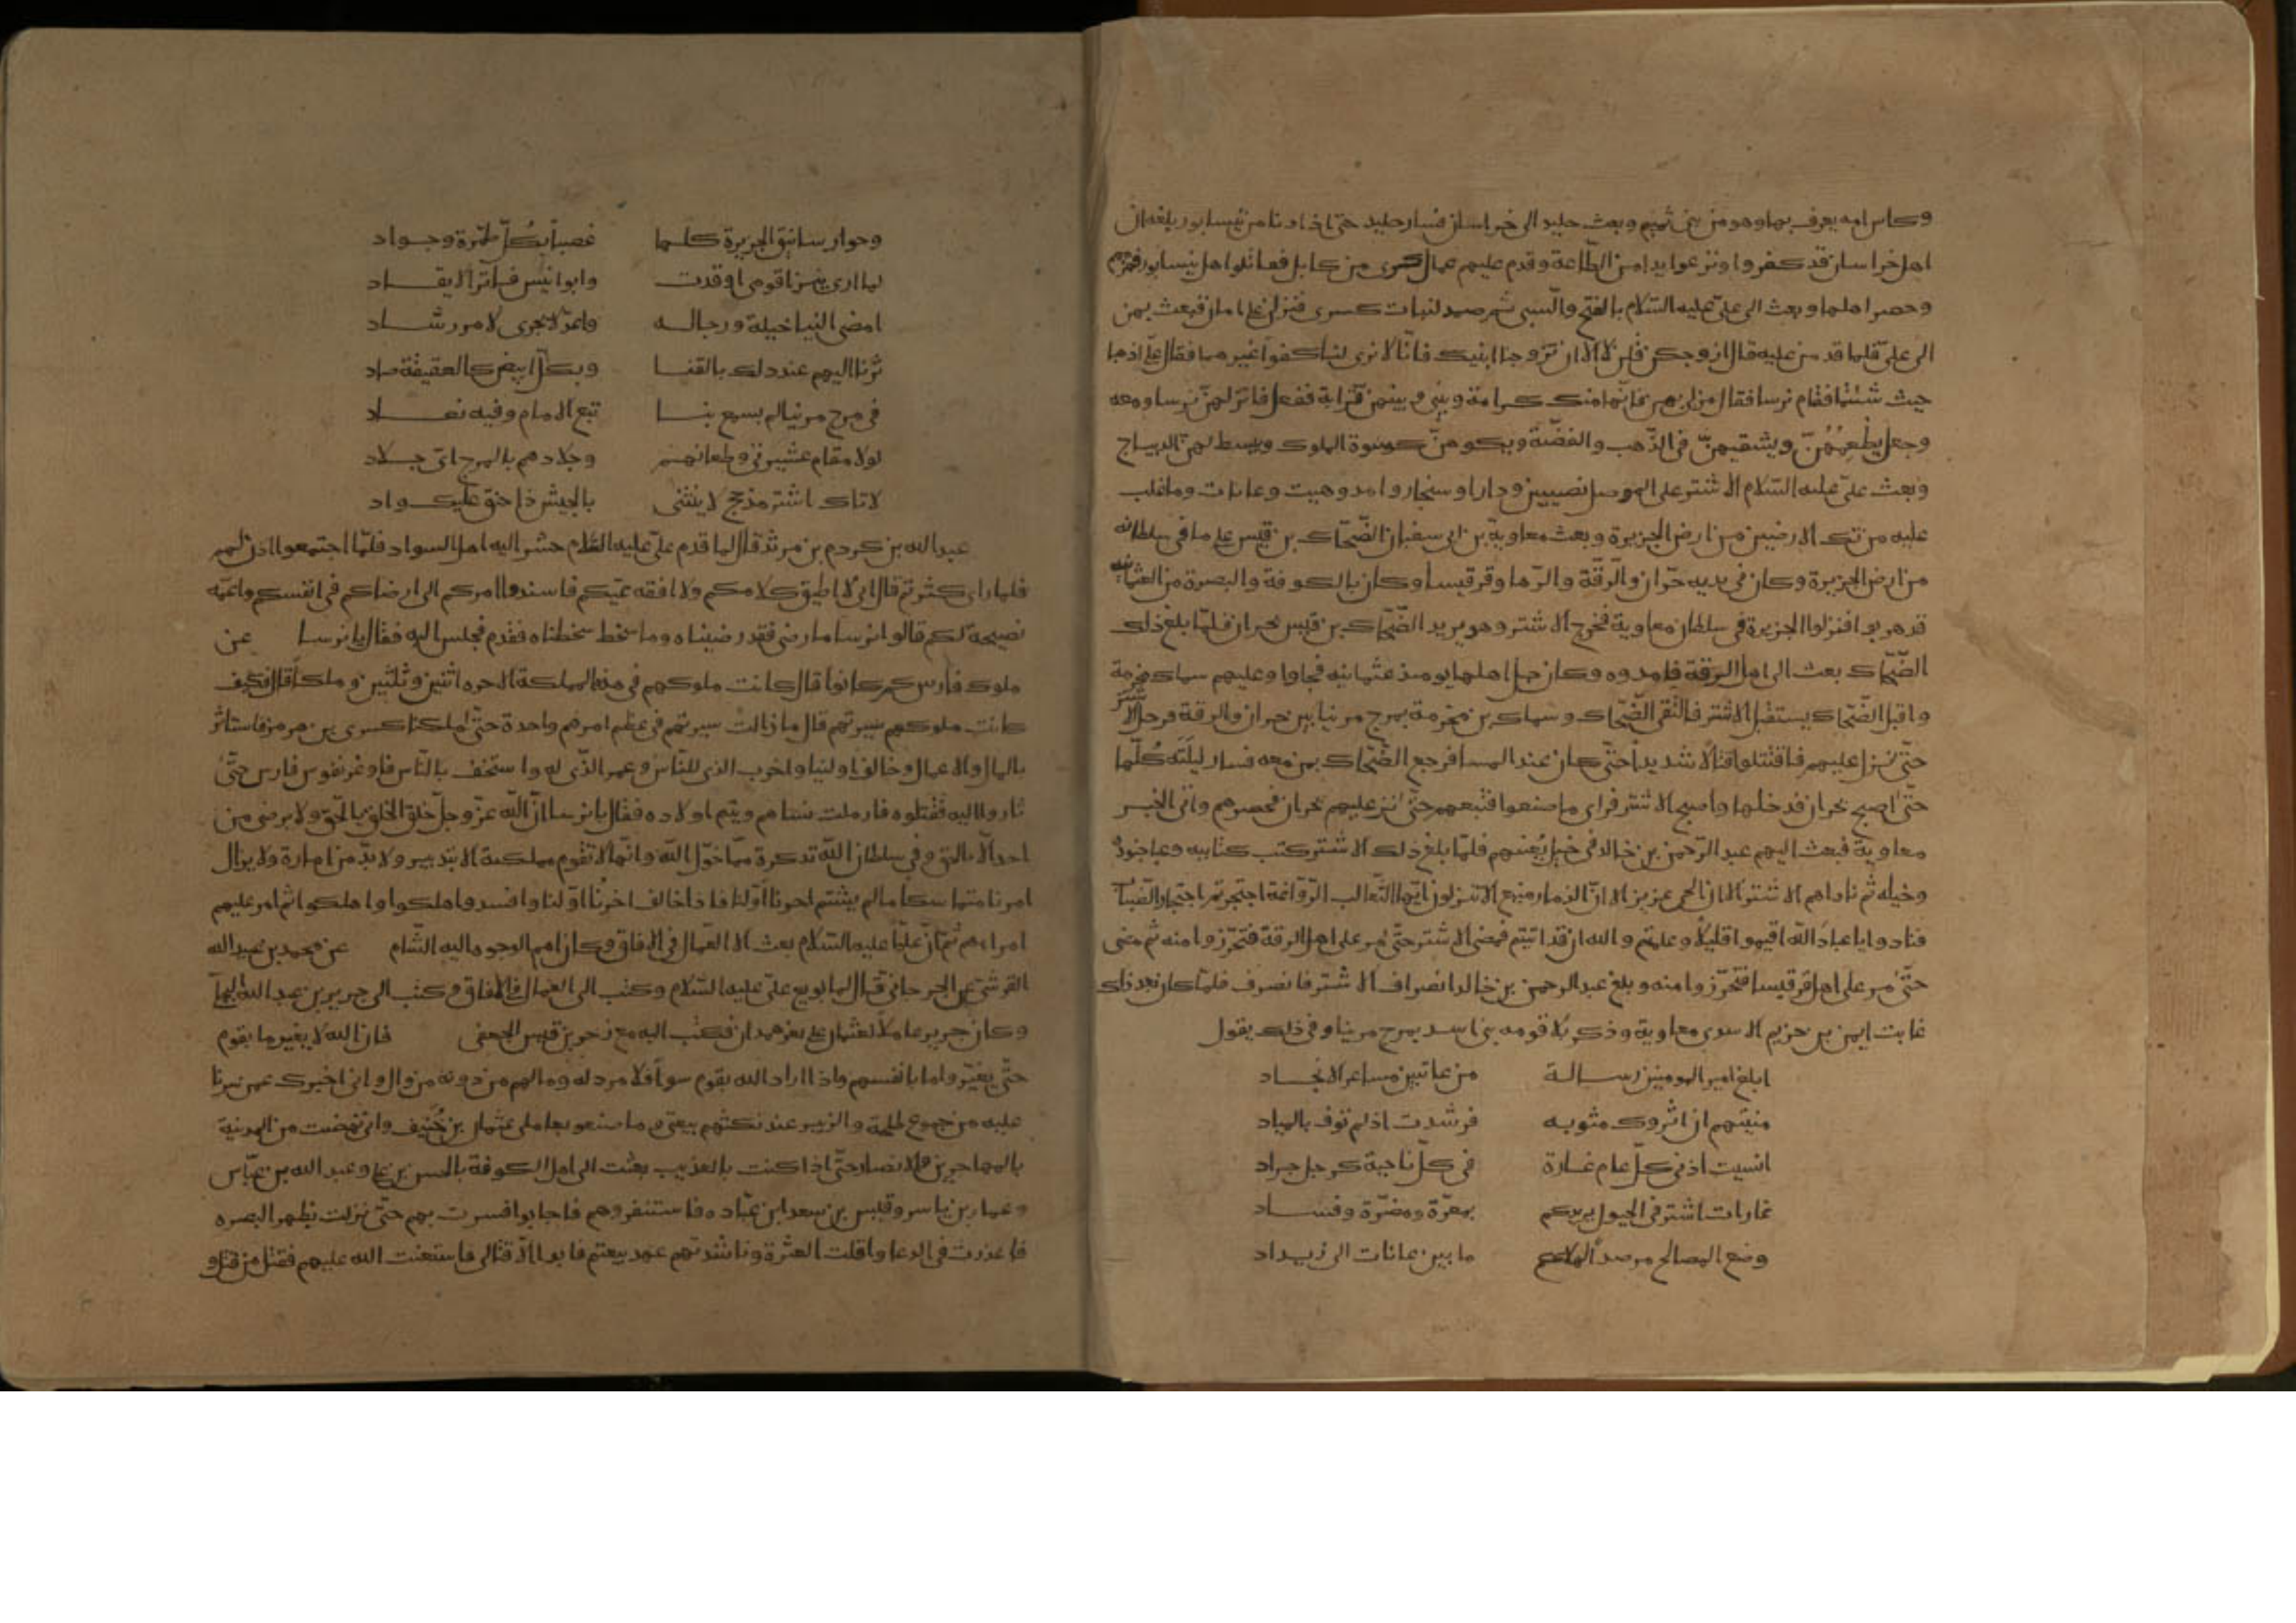 وكاس امه يعرف بها وهو من بني تميم وبعث خليد الى خراسان فسار خليد حتى اذا دنا من نيسابور بلغه ان
اهل خراسان قد كفروا ونزعوا يدا من الطاعة وقدم عليهم عمال كسرى من كابل فقاتلوا اهل نيسابور فهزمهم
وحصر اهلها وبعث الى علي عليه السلام بالفتح والسبي ثم صمد لبنات كسرى فنزلن على امان فبعث بهن
الى علي فلما قدمن عليه قال ازوجكن قلن لا الا ان تزوجنا ابنيك فانا لا نرى لنا كفوا غيرهما فقال علي اذهبا
حيث شئتما فقام نرسا فقال مر لي بهن فانها منك كرامة وبيني وبينهن قرابة ففعل فانزلهن نرسا ومعه
وجعل يطعمهن ويسقيهن في الذهب والفضة ويكسوهن كسوة الملوك ويبسط لهن الديباج
وبعث علي عليه السلام الاشتر على الموصل نصيبين ودارا وسنجار وامد وهيت وعانات وما غلب
عليه من تلك الارضين من ارض الجزيرة وبعث معاوية بن ابي سفيان الضحاك بن قيس على ما في سلطانه
من ارض الجزيرة وكان في يديه حران والرقة والرها وقرقيسا وكان بالكوفة والبصرة من العثمانيه
قد هربوا فنزلوا الجزيرة في سلطان معاوية فخرج الاشتر وهو يريد الضحاك بن قيس بحران فلما بلغ ذلك
الضحاك بعث الى اهل الرقة فامدوه وكان جل اهلها يومئذ عثمانيه فجاوا وعليهم سماك بن مخرمة
واقبل الضحاك يستقبل الاشتر فالتقى الضحاك وسماك بن مخرمة بمرج مرينا بين حران والرقة فرحل الاشتر
حتى نزل عليهم فاقتتلوا قتالا شديدا حتى كان عند المسا فرجع الضحاك بمن معه فسار ليلته كلها
حتى اصبح بحران فدخلها واصبح الاشتر فراى ما صنعوا فتبعهم حتى نزل عليهم بحران فحصرهم واتى الخبر
معاوية فبعث اليهم عبد الرحمن بن خالد في خيل يغيثهم فلما بلغ ذلك الاشتر كتب كتائبه وعبا جنوده
وخيله ثم ناداهم الاشتر الا ان الحي عزيز الا ان الذمار منيع الا تنزلون ايها الثعالب الرواغة احتجرتم احتجار الضباب
فنادوا يا عباد الله اقيموا قليلا وعلمتم والله ان قد اتيتم فمضى الاشتر حتى مر على اهل الرقة فتحرزوا منه ثم مضى
حتى مر على اهل قرقيسا فتحرزوا منه وبلغ عبد الرحمن بن خالد انصراف الاشتر فانصرف فلما كان بعد ذلك
عاتب ايمن بن خزيم الاسدي معاوية وذكر بلا قومه بني اسد بمرج مرينا وفي ذلك يقول
ابلغ امير المومنين رسالة من عاتبين مساعر الانجاد
منيتهم ان اثروك مثوبه فرشدت اذ لم توف بالميعاد
انسيت اذ في كل عام غارة في كل ناحية كرجل جراد
غارات اشتر في الخيول يريدكم بمعرة ومضرة وفساد
وضع المصالح مرصدا لهلاككم ما بين عانات الى زيداد
وحوى رساتيق الجزيرة كلها غصبا بكل طمرة وجواد
لما راى نيران قومي اوقدت وابو انيس فاتر الايقاد
امضى الينا خيله ورجاله واغذ لا يجري لامر رشاد
ثرنا اليهم عند ذلك بالقنا وبكل ابيض كالعقيقة صاد
في مرج مرينا الم يسمع بنا تبع الامام وفيه نعاد
لولا مقام عشيرتي وطعانهم وجلادهم بالمرج اي جلاد
لاتاك اشتر مذحج لا ينثني بالجيش ذا حنق عليك واد
عبد الله بن كردم بن مرثد قال لما قدم علي عليه السلام حشر اليه اهل السواد فلما اجتمعوا اذن لهم
فلما راى كثرتهم قال اني لا اطيق كلامكم ولا افقه عنكم فاسندوا امركم الى ارضاكم في انفسكم واعمه
نصيحة لكم قالوا نرسا ما رضي فقد رضيناه وما سخط سخطناه فقدم فجلس اليه فقال يا نرسا عن
ملوك فارس كم كانوا قال كانت ملوكهم في هذه المملكة الاخره اثنين وثلثين وملكا قال فكيف
كانت ملوكهم سيرتهم قال ما زالت سيرتهم في عظم امرهم واحدة حتى ملكنا كسرى بن هرمز فاستاثر
بالمال والاعمال وخالف اولينا واخرب الذي للناس وعمر الذي له واستخف بالناس فاوغر نفوس فارس حتى
ثاروا اليه فقتلوه فارملت نساهم ويتم اولاده فقال يا نرسا ان الله عز وجل خلق الخلق بالحق ولا يرضى من
احد الا بالحق وفي سلطان الله تذكرة مما خول الله وانها لا تقوم مملكة الا بتدبير ولا بد من امارة ولا يزال
امرنا متماسكا ما لم يشتم اخرنا اولنا فاذا خالف اخرنا اولنا وافسدوا هلكوا واهلكوا ثم امر عليهم
امراءهم ثم ان عليا عليه السلام بعث الا العمال في الافاق وكان اهم الوجوه اليه الشام عن محمد بن عبيد الله
القرشي عن الجرجاني قال لما بويع علي عليه السلام وكتب الى العمال في الافاق وكتب الى جرير بن عبد الله البجلي
وكان جرير عاملا لعثمان على ثغر همدان فكتب اليه مع زحر بن قيس الجعفي فان الله لا يغير ما بقوم
حتى يغيروا ما بانفسهم واذا اراد الله بقوم سوا فلا مرد له وما لهم من دونه من وال واني اخبرك عمن سرنا
عليه من جموع طلحة والزبير عند نكثهم بيعتي وما صنعوا بعاملي عثمان بن حنيف واني نهضت من المدينة
بالمهاجرين والانصار حتى اذا كنت بالعذيب بعثت الى اهل الكوفة بالحسن بن علي وعبد الله بن عباس
وعمار بن ياسر وقيس بن سعد ابن عباده فاستنفروهم فاجابوا فسرت بهم حتى نزلت بظهر البصره
فاعذرت في الدعا واقلت العثرة وناشدتهم عهد بيعتهم فابوا الا قتالي فاستعنت الله عليهم فقتل من قتل و